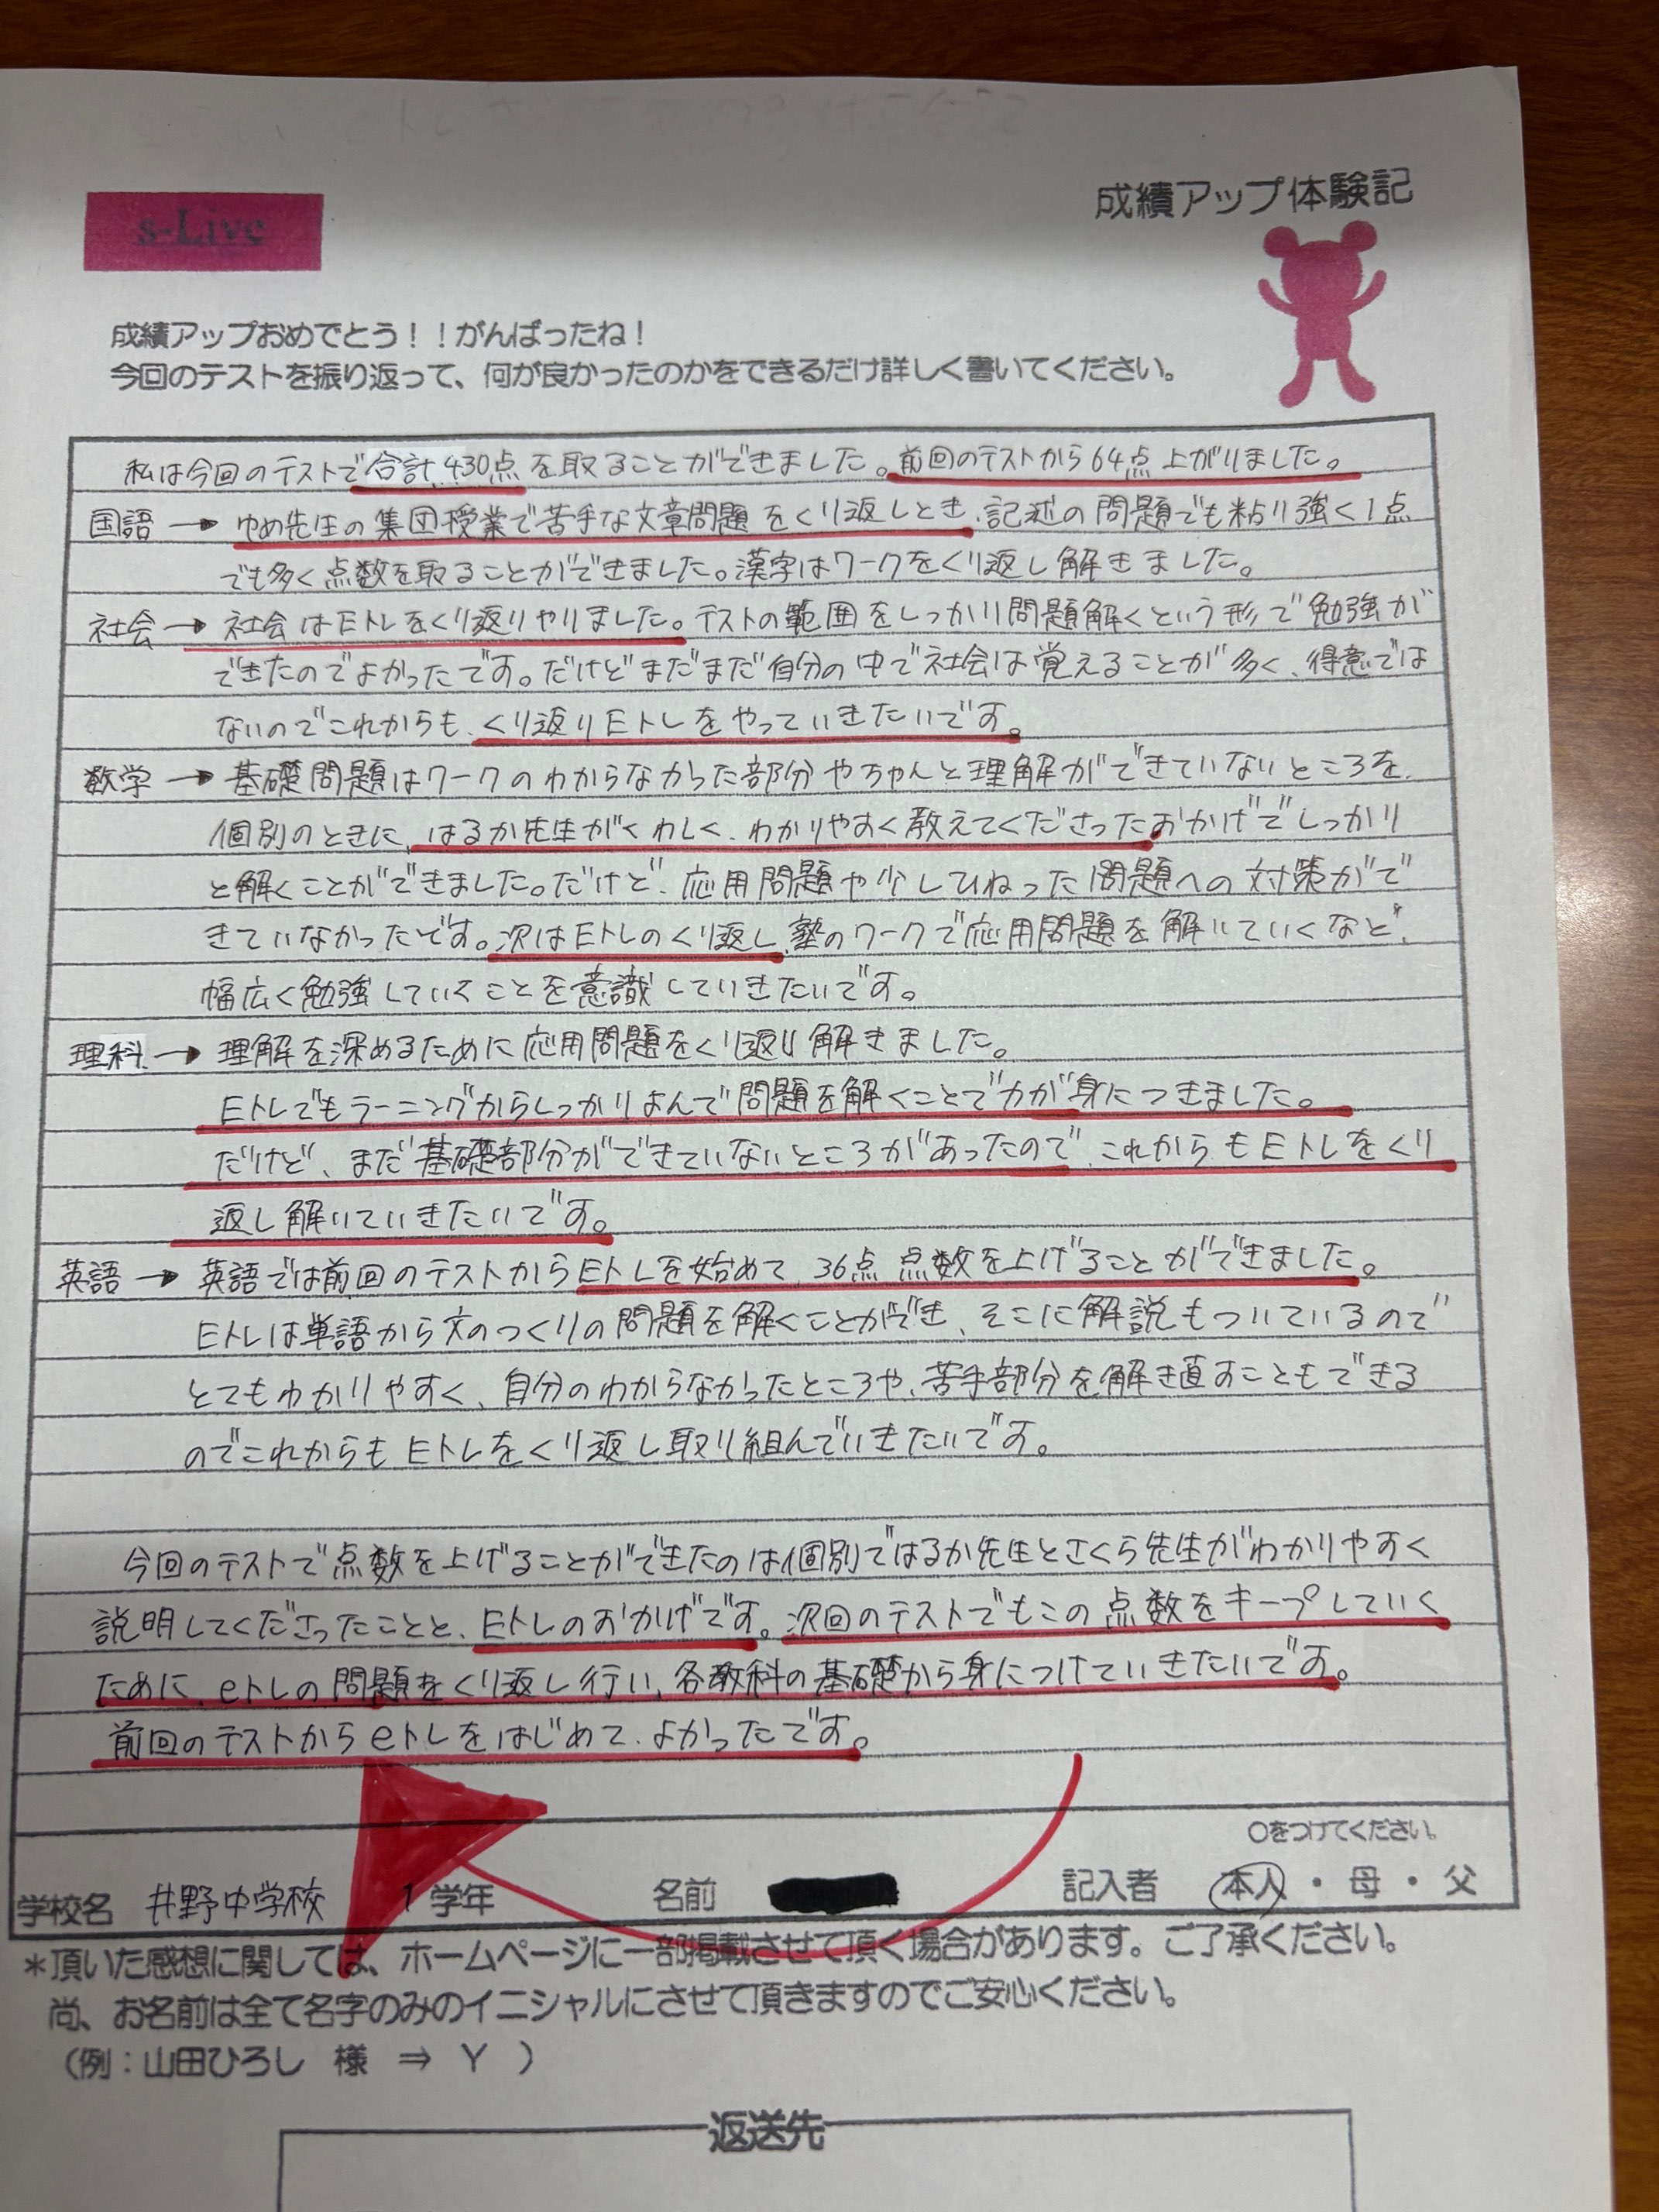 成績アップ体験記
s-Live
成績アップおめでとう！！がんばったね！
今回のテストを振り返って、何が良かったのかをできるだけ詳しく書いてください。
私は今回のテストで合計430点を取ることができました。前回のテストから64点上がりました。
国語→ゆめ先生の集団授業で苦手な文章問題をくり返しとき、記述の問題でも粘り強く1点
でも多く点数を取ることができました。漢字はワークをくり返し解きました。
社会→社会はEトレをくり返りやりました。テストの範囲をしっかり問題解くという形で勉強が
できたのでよかったです。だけどまだまだ自分の中で社会は覚えることが多く、得意では
ないのでこれからも、くり返りEトレをやっていきたいです。
数学→基礎問題はワークのわからなかった部分やちゃんと理解ができていないところを、
個別のときに、はるか先生がくわしく、わかりやすく教えてくださったおかげでしっかり
と解くことができました。だけど、応用問題や少しひねった問題への対策がで
きていなかったです。次はEトレのくり返し、塾のワークで応用問題を解いていくなど、
幅広く勉強していくことを意識していきたいです。
理科→理解を深めるために応用問題をくり返り解きました。
Eトレでもラーニングからしっかりよんで問題を解くことで力が身につきました。
だけど、まだ基礎部分ができていないところがあったので、これからもEトレをくり
返し解いていきたいです。
英語→英語では前回のテストからEトレを始めて、36点点数を上げることができました。
Eトレは単語から文のつくりの問題を解くことができ、そこに解説もついているので
とてもわかりやすく、自分のわからなかったところや、苦手部分を解き直すこともできる
のでこれからもEトレをくり返し取り組んでいきたいです。
今回のテストで点数を上げることができたのは個別ではるか先生とさくら先生がわかりやすく
説明してくださったことと、Eトレのおかげです。次回のテストでもこの点数をキープしていく
ために、eトレの問題をくり返し行い、各教科の基礎から身につけていきたいです。
前回のテストからeトレをはじめて、よかったです。
○をつけてください。
学校名 井野中学校 1 学年 名前 記入者 本人・母・父
*頂いた感想に関しては、ホームページに一部掲載させて頂く場合があります。ご了承ください。
尚、お名前は全て名字のみのイニシャルにさせて頂きますのでご安心ください。
（例：山田ひろし 様 ⇒ Y ）
返送先